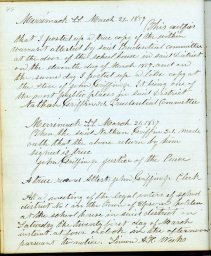 Merrimack Ss. March 21. 1857
This certifies
that I posted up a true copy of the within
warrant attested by said Prudential committee
at the door of the school house in said district
on the day of March 1857 and on
the same day I posted up a like copy at
the store of John being one of
the most public places in said district
Nathan Griffin Prudential Committee
Merrimack Ss. March 21, 1857
Then the said Nathan Griffin made
oath that the above return by him
signed is true
John Justice of the Peace
A true record Attest John Clerk
At a meeting of the legal voters of school
district No 1 in the Town of holden
at the school house in said district on
Saturday the twenty first day of March
instant at four o clock in the afternoon
pursuant to notice